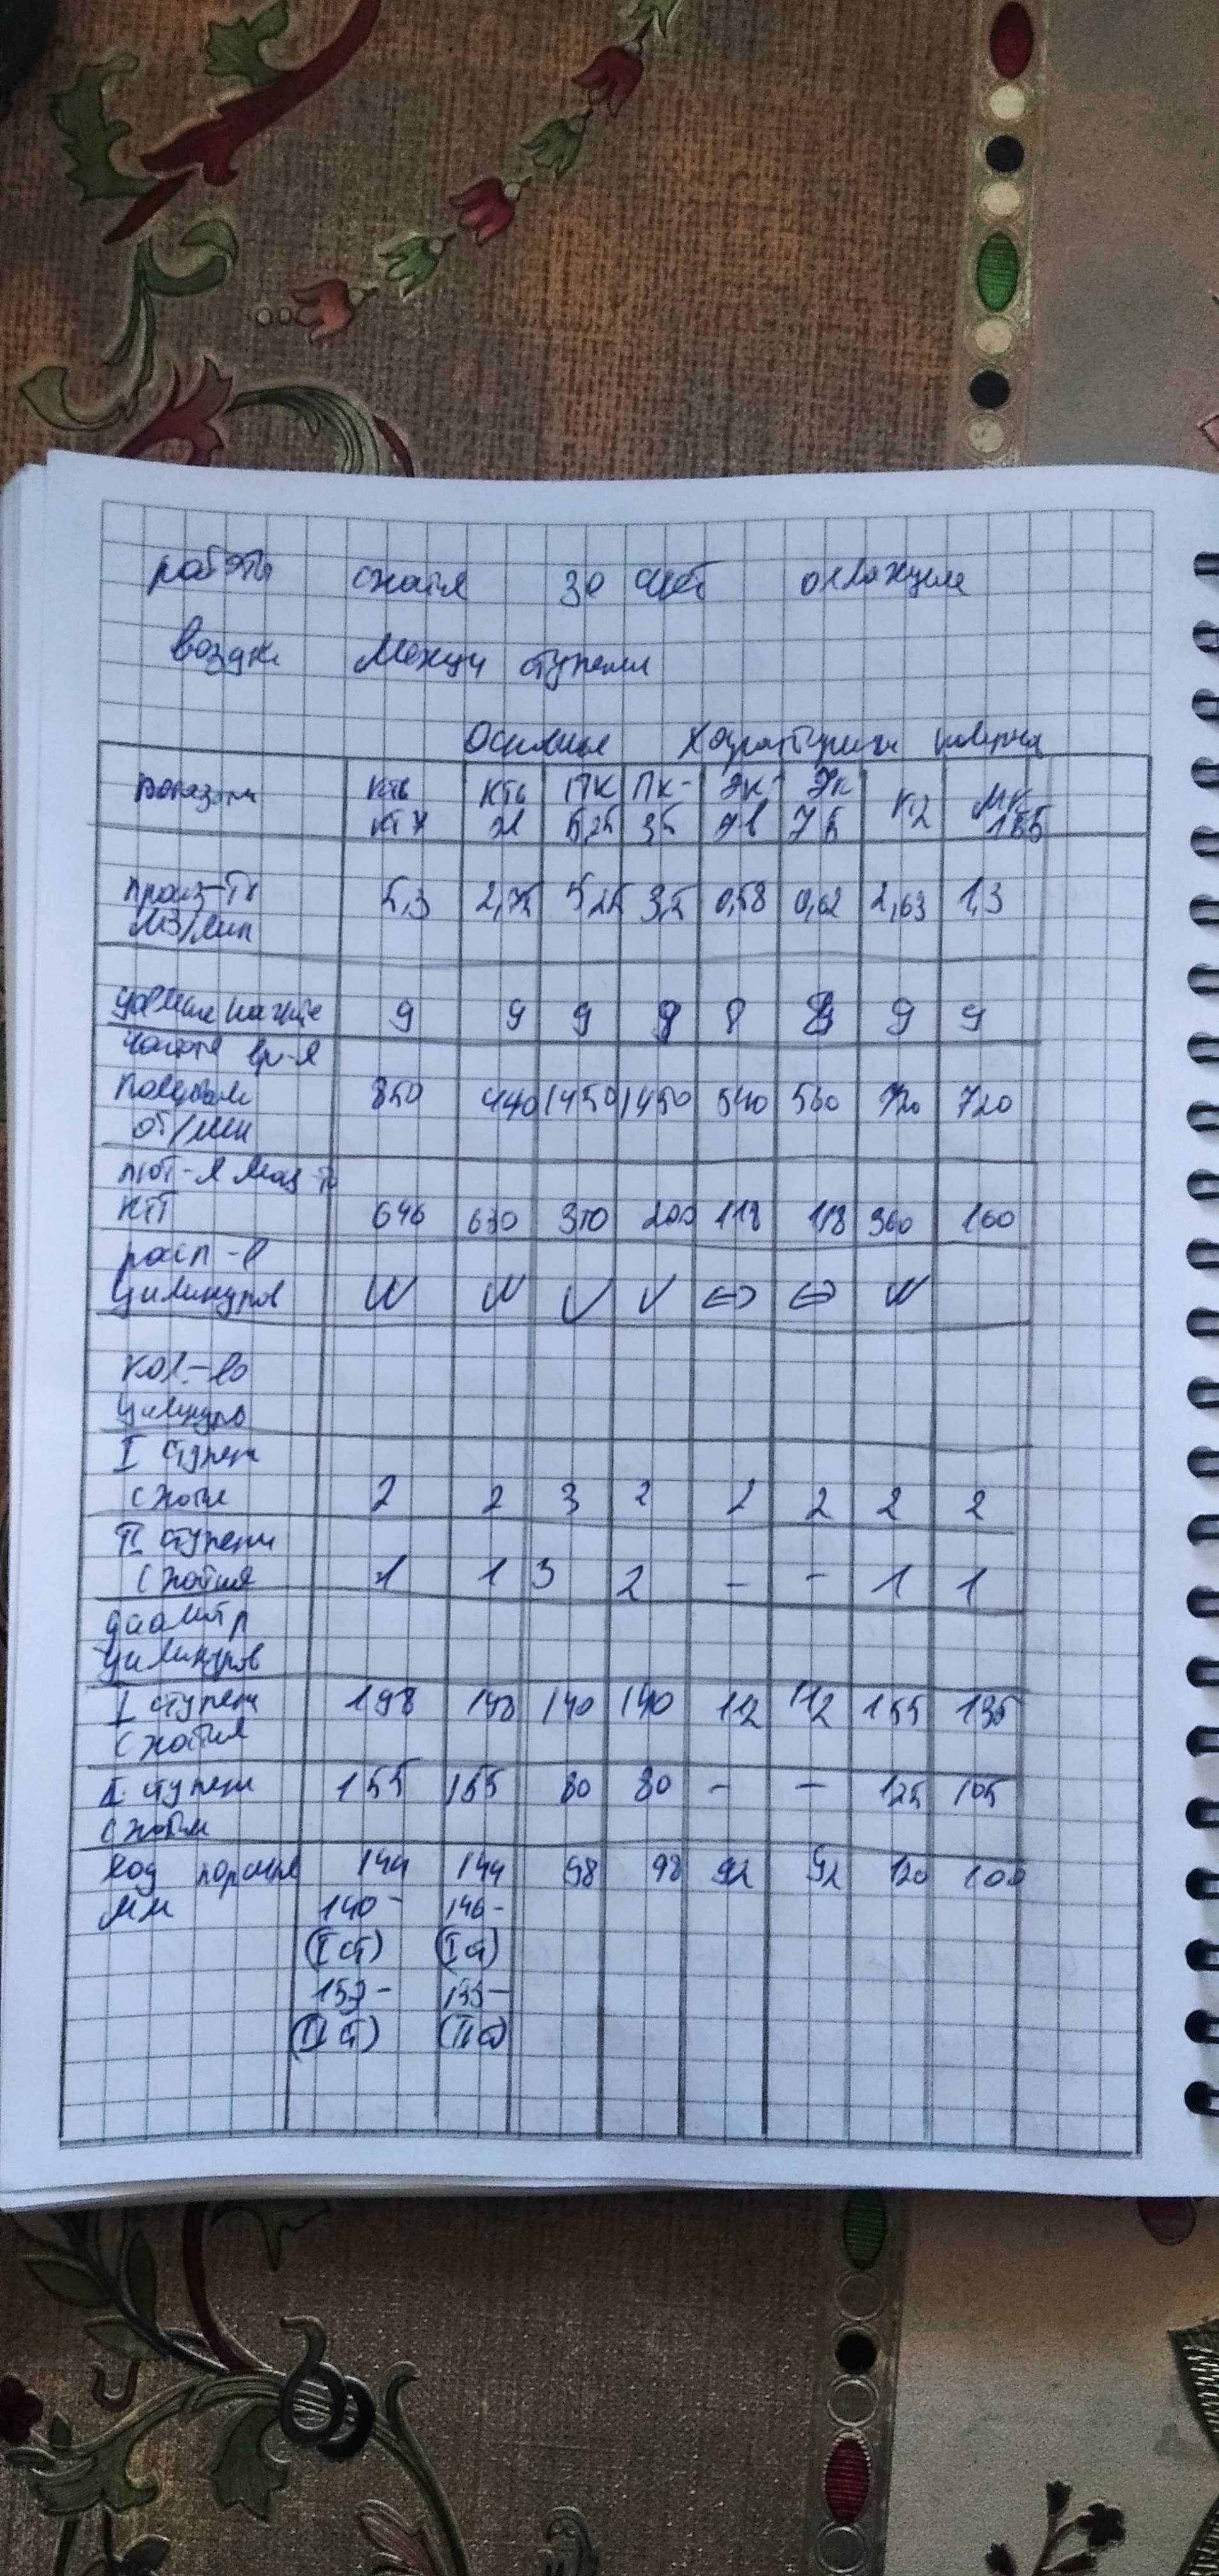 работы сжатия за счёт охлажция
воздух между ступеми
Основные Характерики компреа
показат КТ6 КТ6 ПК ПК- ЭК- ЭК К2 МК
КТ7 Эл 5,25 3,5 7В 7Б 155
произ-ть 5,3 2,75 5,25 3,5 0,58 0,62 2,63 1,3
м3/мин
давлен нагнте 9 9 9 9 8 8 9 9
частота вр-я
850 440 1450 1450 540 560 720 720
об/мин
пот-я мощ-ть
КТ 646 630 370 200 118 118 360 160
расп-е
цилиндров W W V V ⇔ ⇔ W
кол-во
цилиндро
I ступен
сжати 2 2 3 2 2 2 2 2
II ступени
сжатия 1 1 3 2 – – 1 1
диаметр
цилиндров
I ступени 198 198 140 140 112 112 155 135
сжатия
II ступени 155 155 80 80 – – 125 105
сжати
ход поршня 144 144 98 98 92 92 120 100
мм 140- 146-
(I ст) (I ст)
153- 153-
(II ст) (II ст)